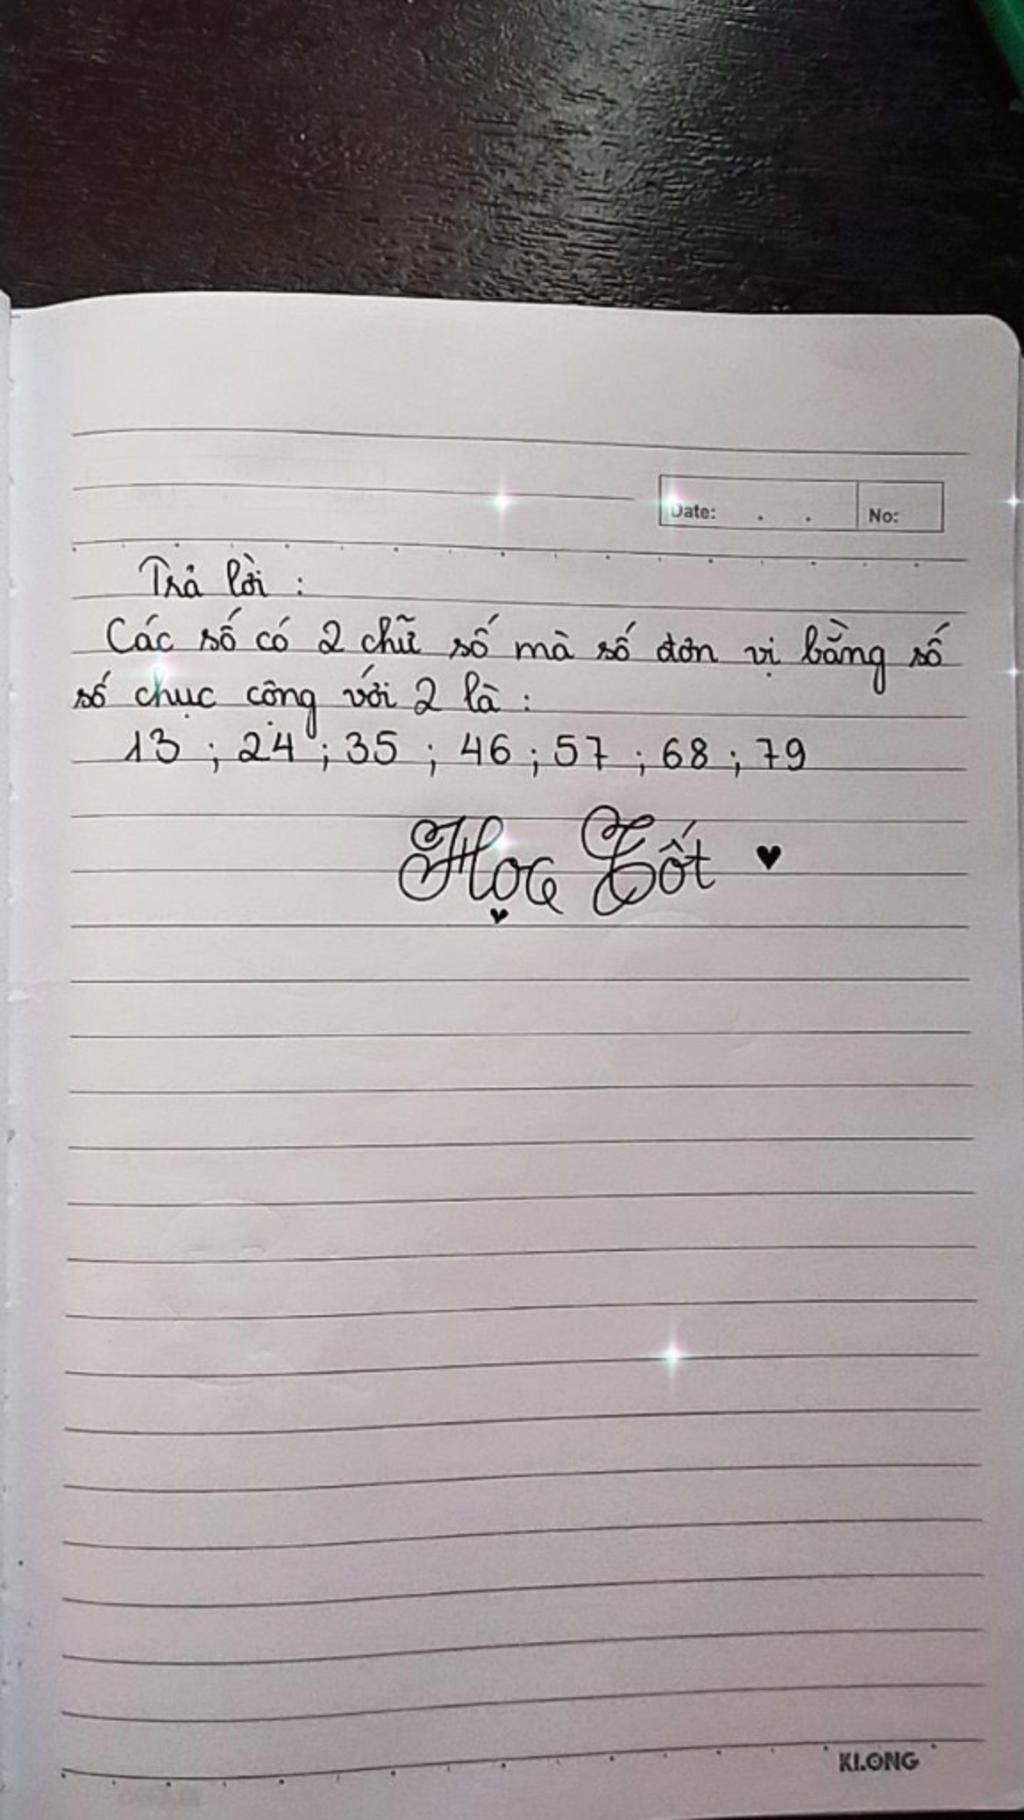 Date: . . No:
Trả lời :
Các số có 2 chữ số mà số đơn vị bằng số
số chục cộng với 2 là :
13 ; 24 ; 35 ; 46 ; 57 ; 68 ; 79
Học Tốt ♥
KLONG